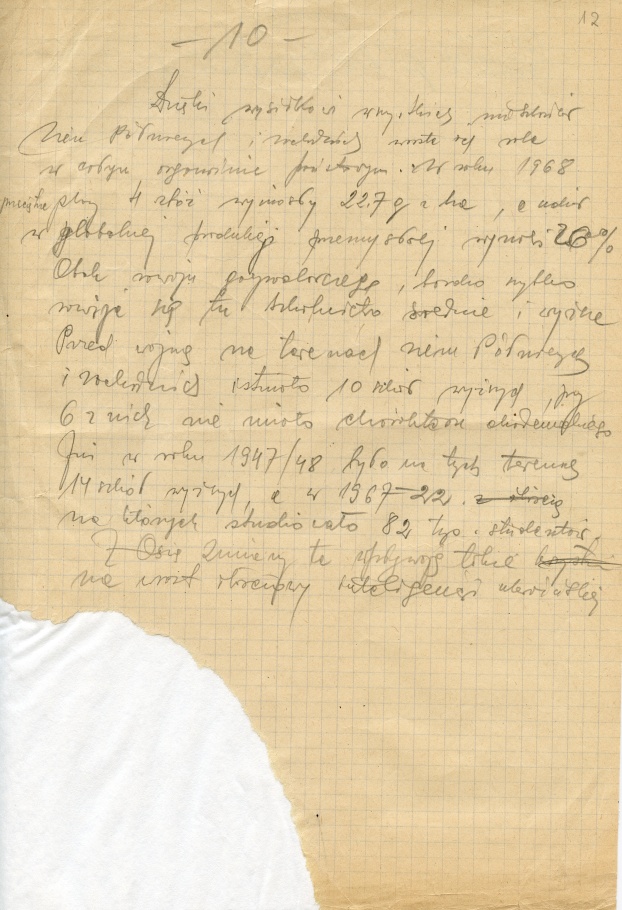 12
- 10 -
Dzięki wysiłkowi wszystkich mieszkańców
Ziem Północnych i Zachodnich wzrasta ich rola
w całym organizmie państwowym. W roku 1968
przeciętne plony 4 zbóż wynosiły 22,7 q z ha, a udział
w globalnej produkcji przemysłowej wynosi 26%
Obok rozwoju gospodarczego, bardzo szybko
rozwija się tu szkolnictwo średnie i wyższe
Przed wojną na terenach ziem Północnych
i Zachodnich istniało 10 szkół wyższych, przy
6 z nich nie miało charakteru akademickiego
Już w roku 1947/48 było na tych terenach
14 szkół wyższych, a w 1967-22.
na których studiowało 82 tys. studentów.
zmiany te wpływają także
na wzrost inteligencji